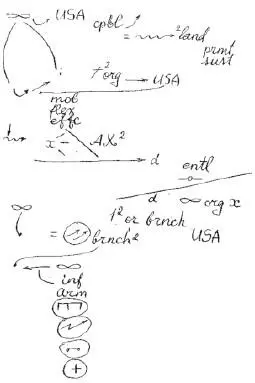 ∞ USA cpbl
= ² land
prmt
sust
+² org → USA
mob
flex
effc
x A.X²
d
entl
d ∞ org x
1² or brnch
∞ USA
= brnch²
← ∞
inf
arm
+